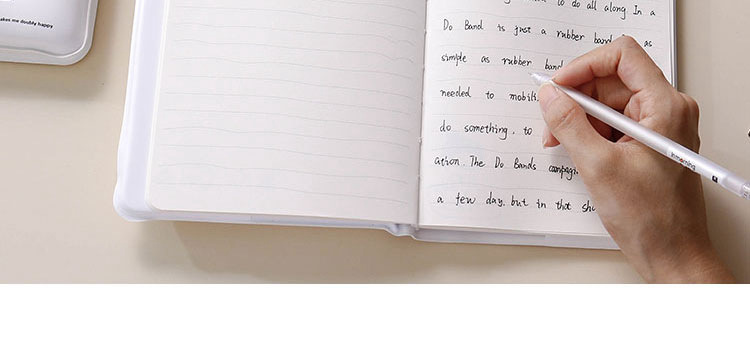 akes me doubly happy
to do all along In a
Do Band is just a rubber band as
simple as rubber band
needed to mobili
do something, to
action. The Do Bands campagi
a few day. but in that sh